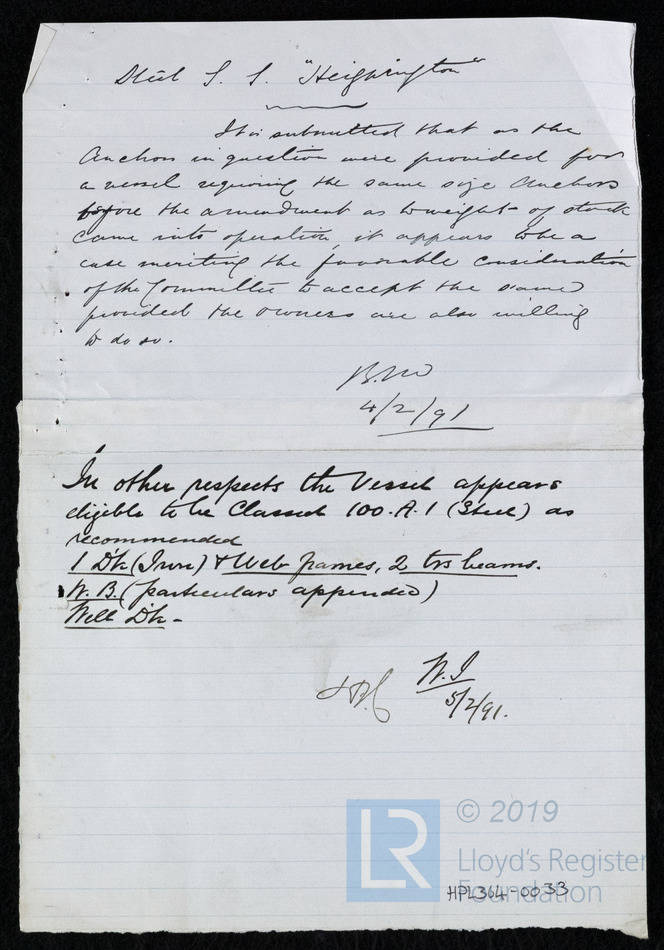 Steel S. S. "Heighington"
It is submitted that as the
Anchors in question were provided for
a vessel requiring the same size Anchors
before the amendment as to weight of stock
came into operation, it appears to be a
case meriting the favorable consideration
of the Committee to accept the same
provided the owners are also willing
to do so.
4/2/91
In other respects the Vessel appears
eligible to be Classed 100.A.1 (Steel) as
recommended
1 Dk (Iron) & Web frames, 2 trs beams.
W.B. (particulars appended)
Well Dk -
W.I
5/2/91.
LR
© 2019
Lloyd's Register
Foundation
HPL364-0033